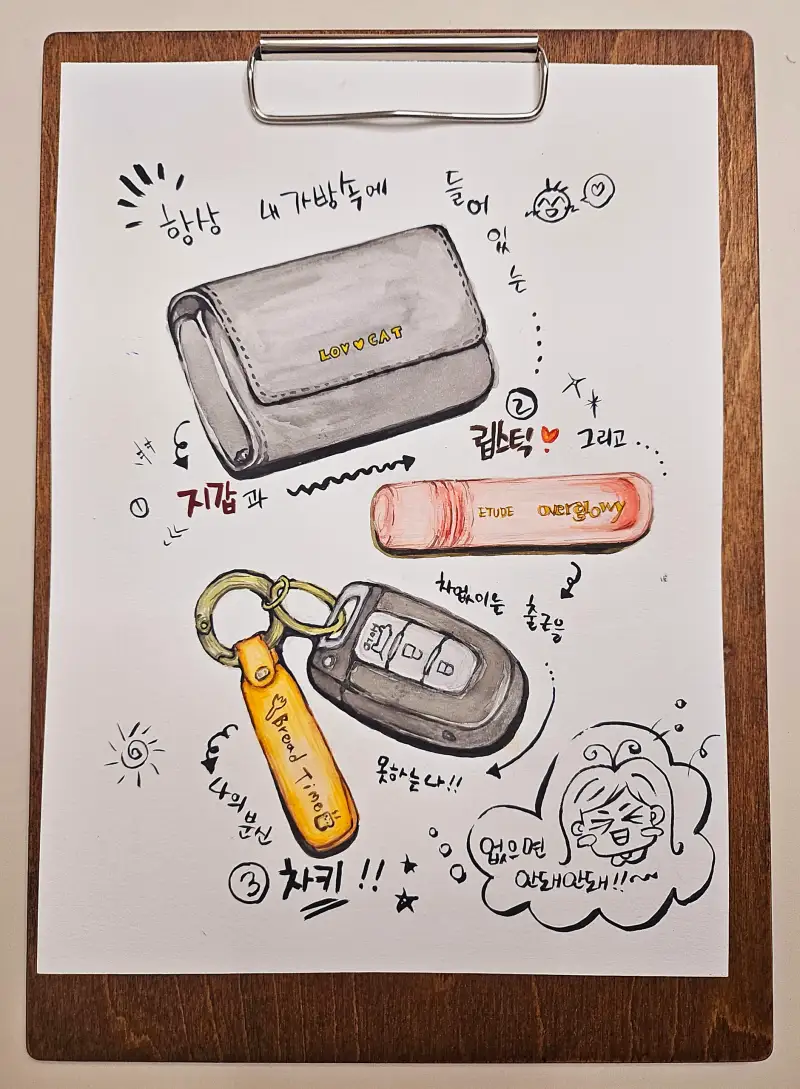 항상 내 가방속에 들어있는
LOV♥CAT
① 지갑과
② 립스틱♥ 그리고...
ETUDE overglowy
차없이는 출근을
못하는 나!!
Bread Time
나의 분신
③ 차키!!
없으면
안돼안돼!!~